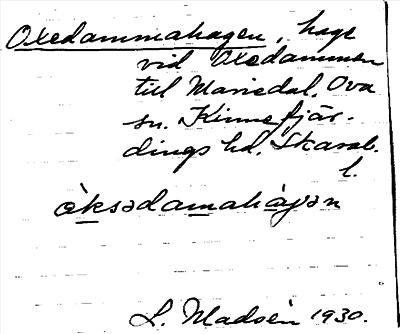 Oxedammahagen, hage
vid Oxedammen
till Mariedal, Ova
sn. Kinnefjär-
dings hd. Skarab.
l.
òksədamahàgən
L. Madsén 1930.